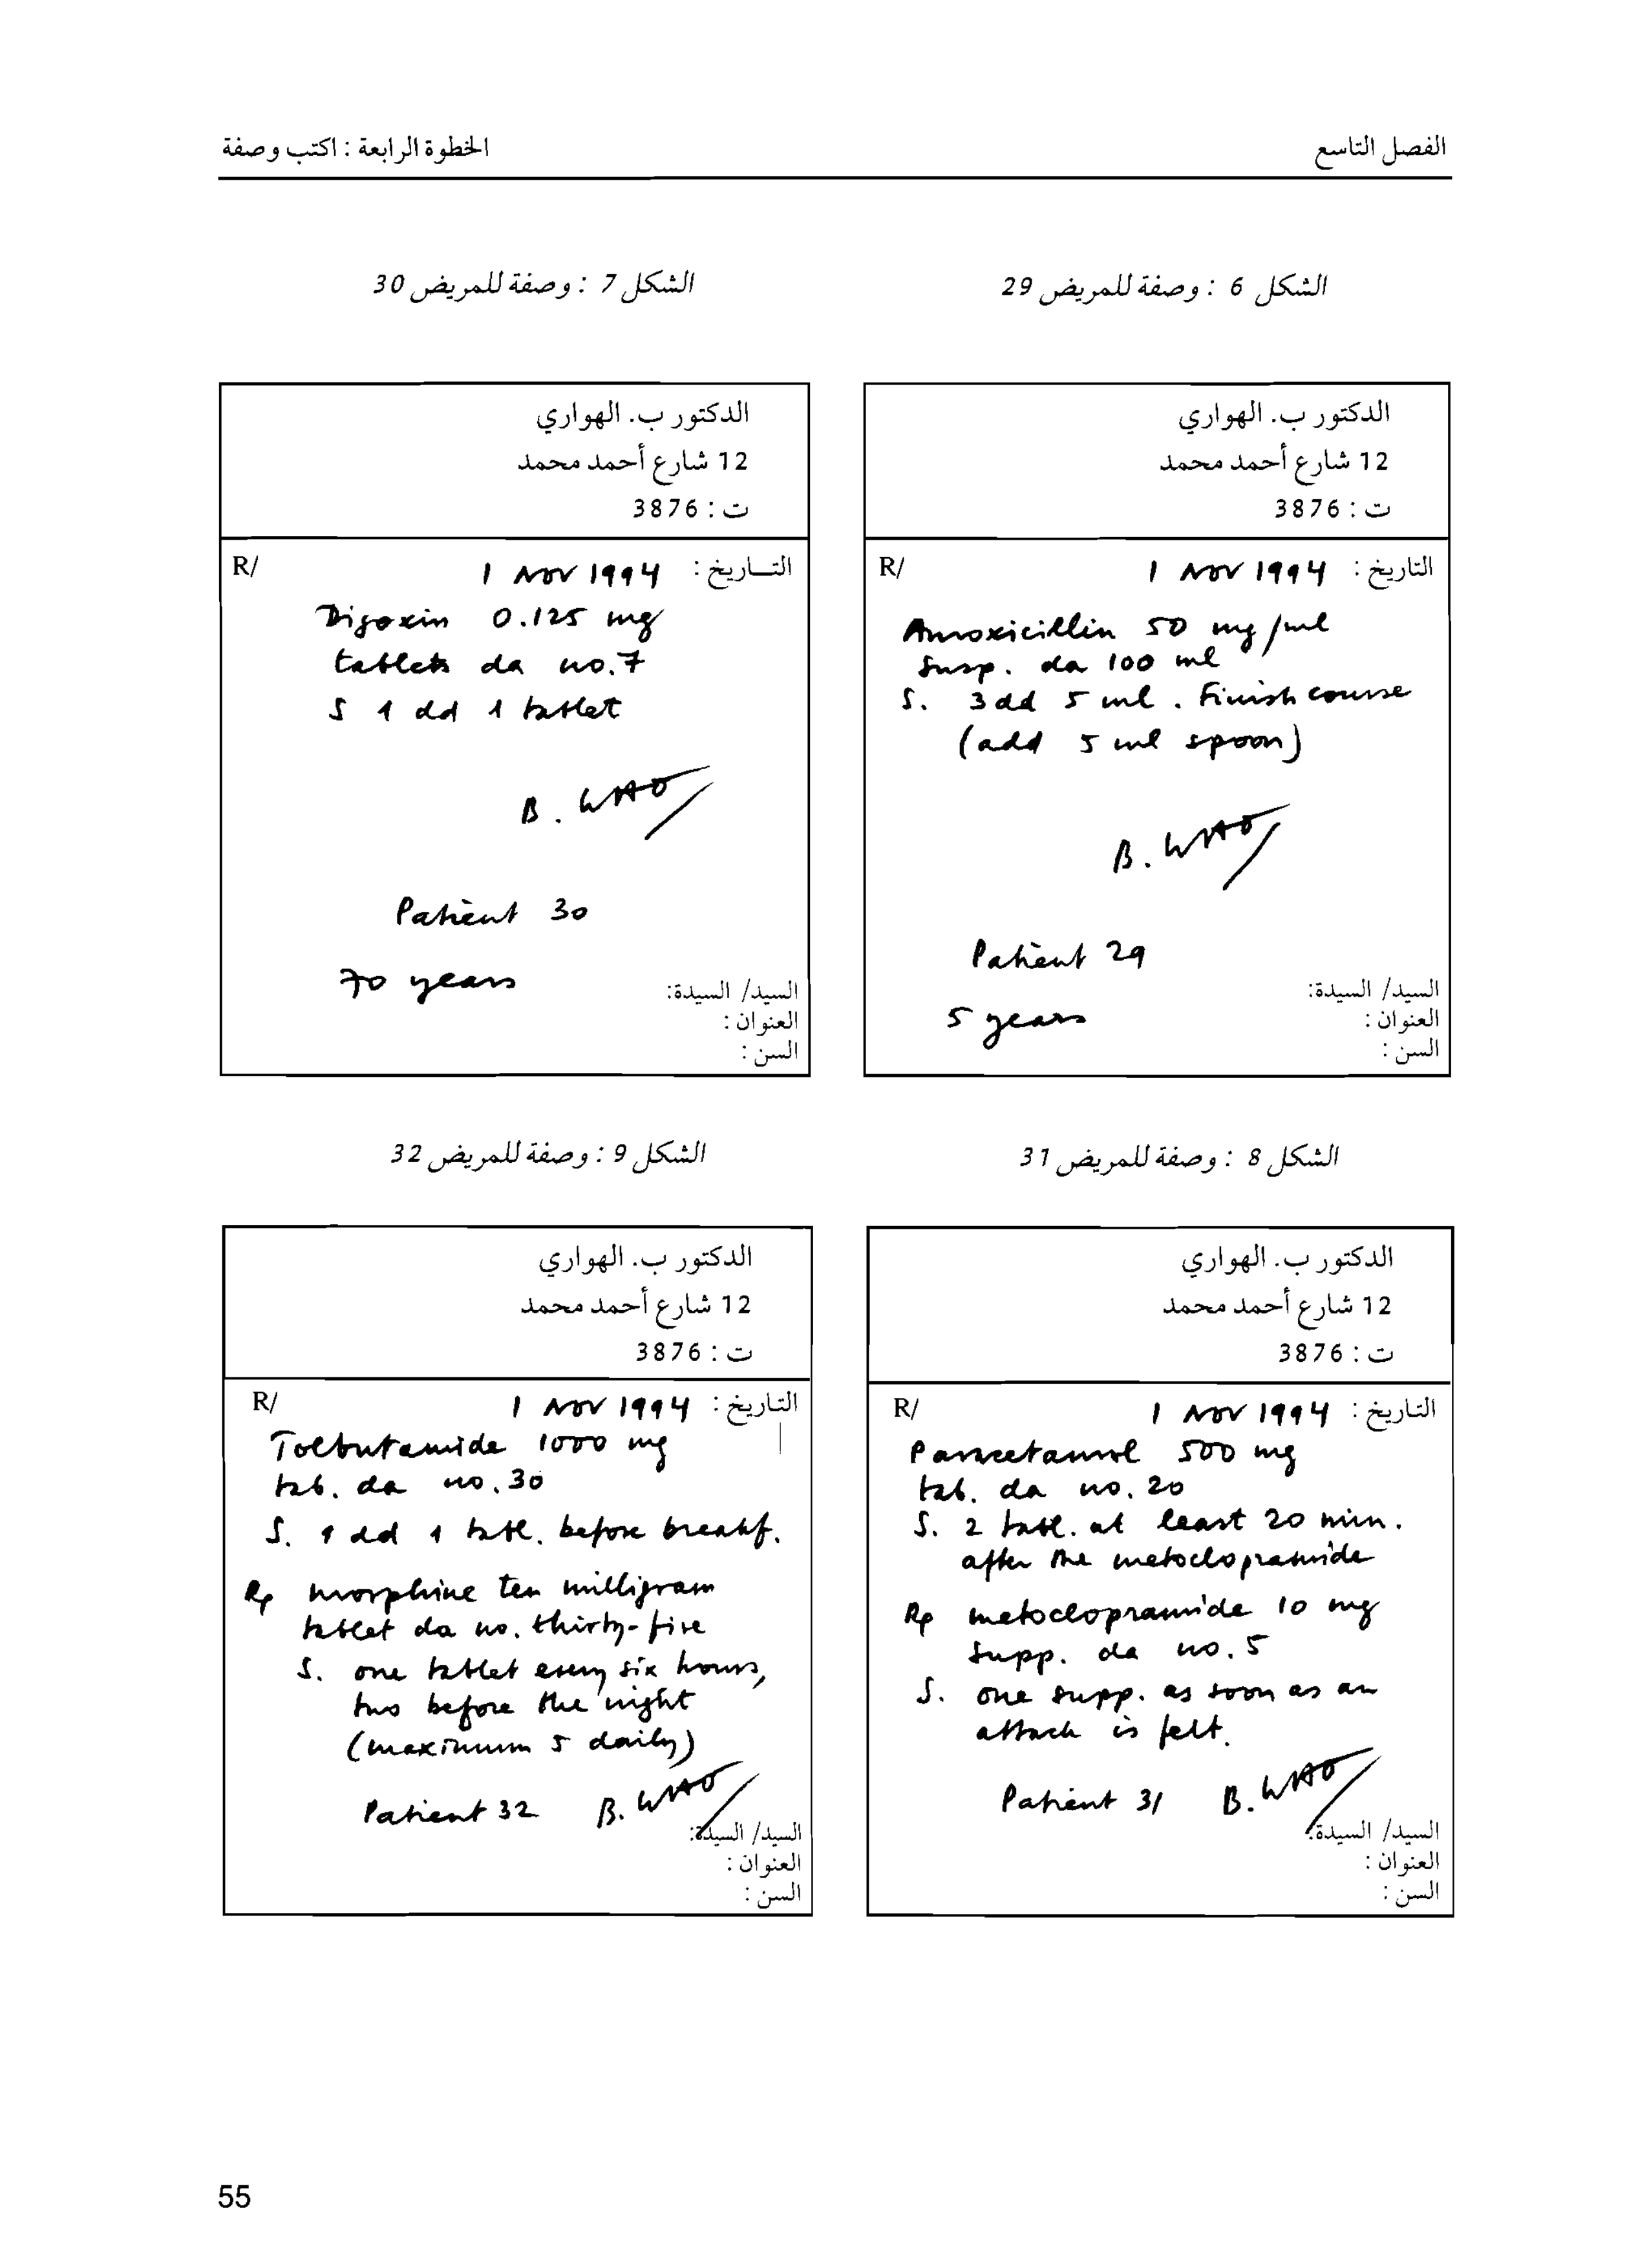 الفصل التاسع
الخطوة الرابعة : اكتب وصفة
الشكل 6 : وصفة للمريض 29
الدكتور ب. الهواري
12 شارع أحمد محمد
ت : 3876
R/ التاريخ : 1 NOV 1994
Amoxicillin 50 mg/ml
susp. da 100 ml
S. 3 dd 5 ml. Finish course
(add 5 ml spoon)
B. WHO
Patient 29
السيد/ السيدة:
5 years
العنوان :
السن :
الشكل 7 : وصفة للمريض 30
الدكتور ب. الهواري
12 شارع أحمد محمد
ت : 3876
R/ التـاريخ : 1 NOV 1994
Digoxin 0.125 mg
tablets da no. 7
S 1 dd 1 tablet
B. WHO
Patient 30
70 years
السيد/ السيدة:
العنوان :
السن :
الشكل 8 : وصفة للمريض 31
الدكتور ب. الهواري
12 شارع أحمد محمد
ت : 3876
R/ التاريخ : 1 NOV 1994
Paracetamol 500 mg
tab. da no. 20
S. 2 tabl. at least 20 min.
after the metoclopramide
Rp metoclopramide 10 mg
supp. da no. 5
S. one supp. as soon as an
attack is felt.
Patient 31 B. WHO
السيد/ السيدة:
العنوان :
السن :
الشكل 9 : وصفة للمريض 32
الدكتور ب. الهواري
12 شارع أحمد محمد
ت : 3876
R/ التاريخ : 1 NOV 1994
Tolbutamide 1000 mg
tab. da no. 30
S. 1 dd 1 tabl. before breakf.
Rp morphine ten milligram
tablet da no. thirty-five
S. one tablet every six hours,
two before the night
(maximum 5 daily)
Patient 32 B. WHO
السيد/ السيدة:
العنوان :
السن :
55